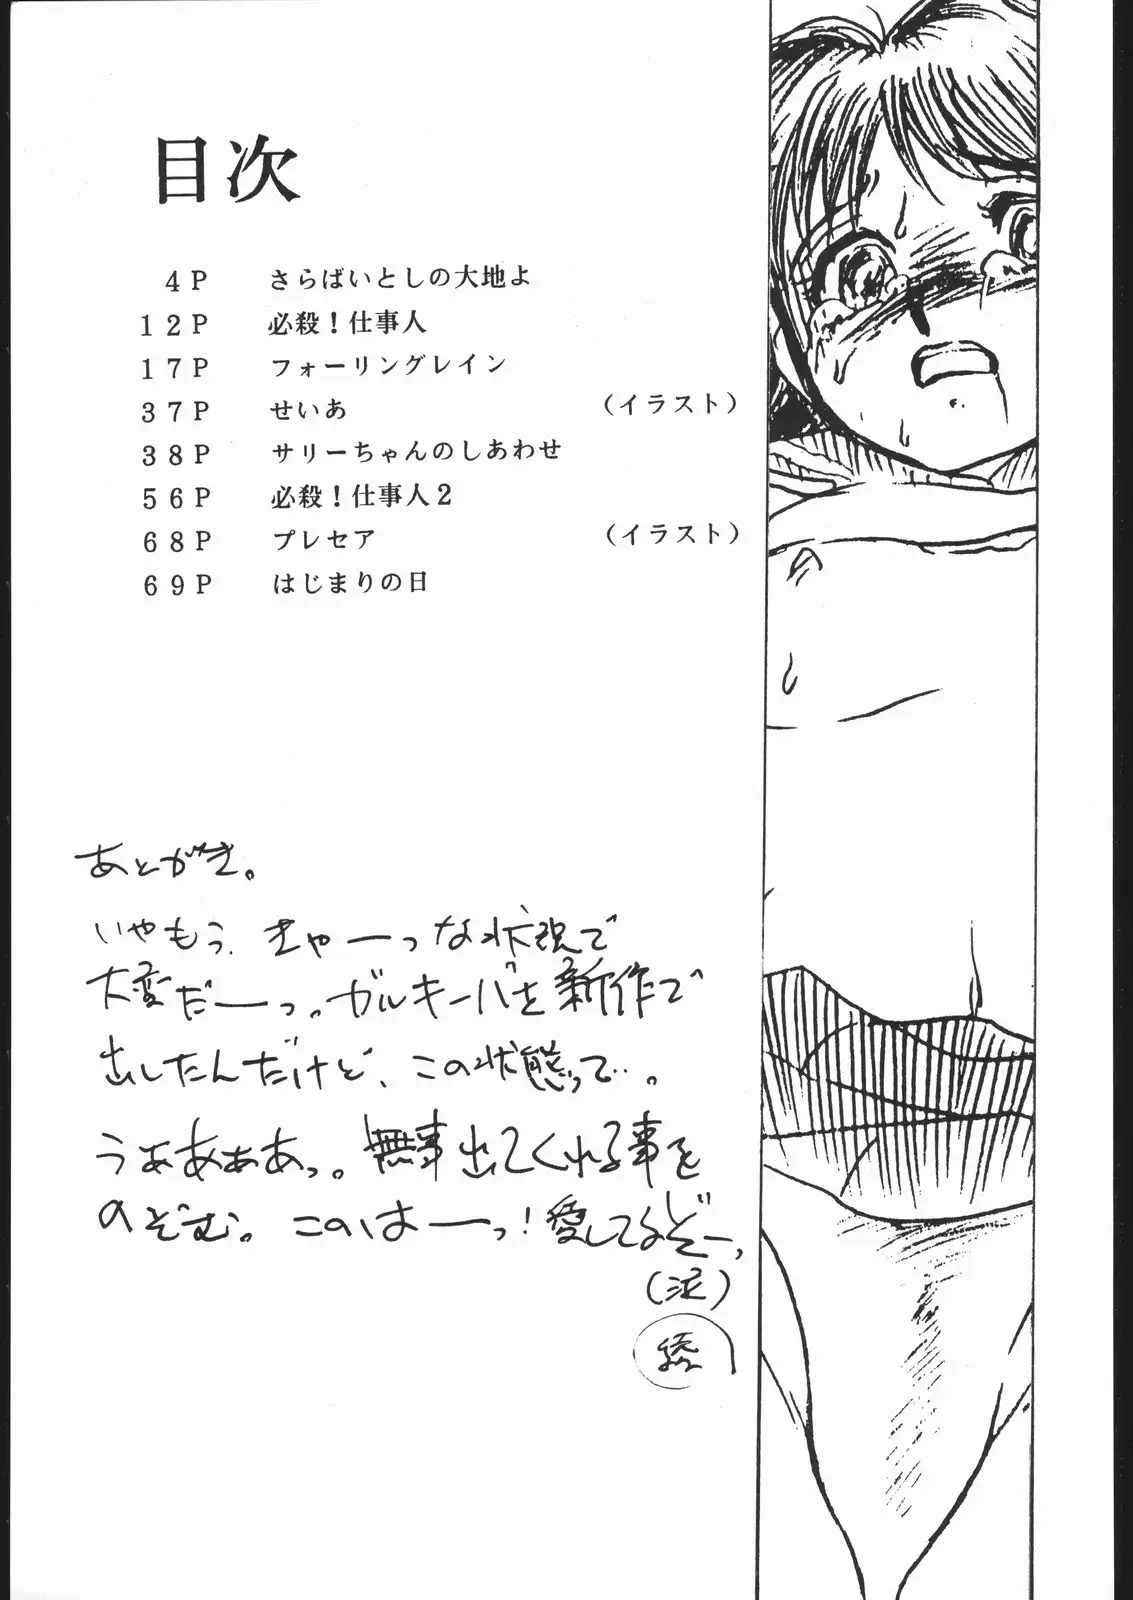 目次
4P さらばいとしの大地よ
12P 必殺!仕事人
17P フォーリングレイン
37P せいあ (イラスト)
38P サリーちゃんのしあわせ
56P 必殺!仕事人2
68P プレセア (イラスト)
69P はじまりの日
あとがき。
いやもう、きゃーっな状況で
大変だーっ。ガルキーバを新作で
出したんだけど、この状態って…。
うああぁあっ。無事出てくれる事を
のぞむ。このはーっ!愛してるぞーっ
(泥)